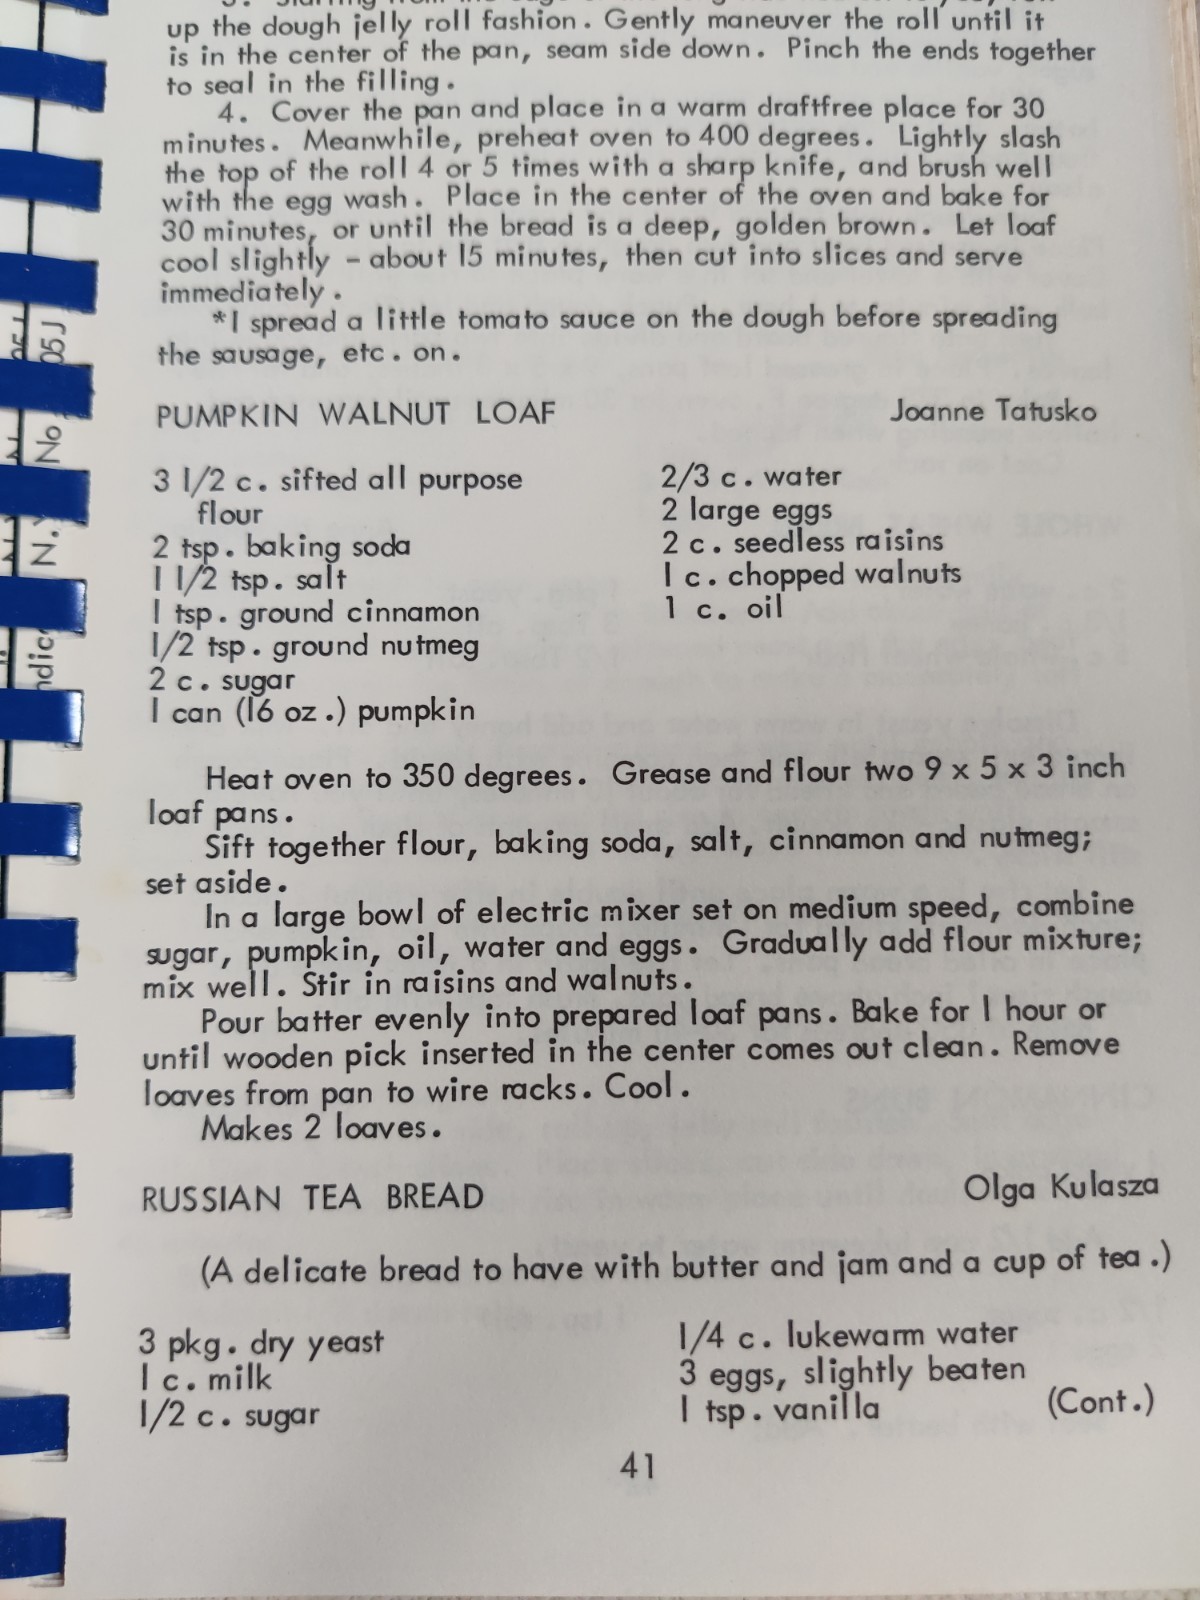 up the dough jelly roll fashion. Gently maneuver the roll until it
is in the center of the pan, seam side down. Pinch the ends together
to seal in the filling.
4. Cover the pan and place in a warm draftfree place for 30
minutes. Meanwhile, preheat oven to 400 degrees. Lightly slash
the top of the roll 4 or 5 times with a sharp knife, and brush well
with the egg wash. Place in the center of the oven and bake for
30 minutes, or until the bread is a deep, golden brown. Let loaf
cool slightly - about 15 minutes, then cut into slices and serve
immediately.
*I spread a little tomato sauce on the dough before spreading
the sausage, etc. on.
PUMPKIN WALNUT LOAF Joanne Tatusko
3 1/2 c. sifted all purpose
flour
2 tsp. baking soda
1 1/2 tsp. salt
1 tsp. ground cinnamon
1/2 tsp. ground nutmeg
2 c. sugar
1 can (16 oz.) pumpkin
2/3 c. water
2 large eggs
2 c. seedless raisins
1 c. chopped walnuts
1 c. oil
Heat oven to 350 degrees. Grease and flour two 9 x 5 x 3 inch
loaf pans.
Sift together flour, baking soda, salt, cinnamon and nutmeg;
set aside.
In a large bowl of electric mixer set on medium speed, combine
sugar, pumpkin, oil, water and eggs. Gradually add flour mixture;
mix well. Stir in raisins and walnuts.
Pour batter evenly into prepared loaf pans. Bake for 1 hour or
until wooden pick inserted in the center comes out clean. Remove
loaves from pan to wire racks. Cool.
Makes 2 loaves.
RUSSIAN TEA BREAD Olga Kulasza
(A delicate bread to have with butter and jam and a cup of tea.)
3 pkg. dry yeast
1 c. milk
1/2 c. sugar
1/4 c. lukewarm water
3 eggs, slightly beaten
1 tsp. vanilla (Cont.)
41